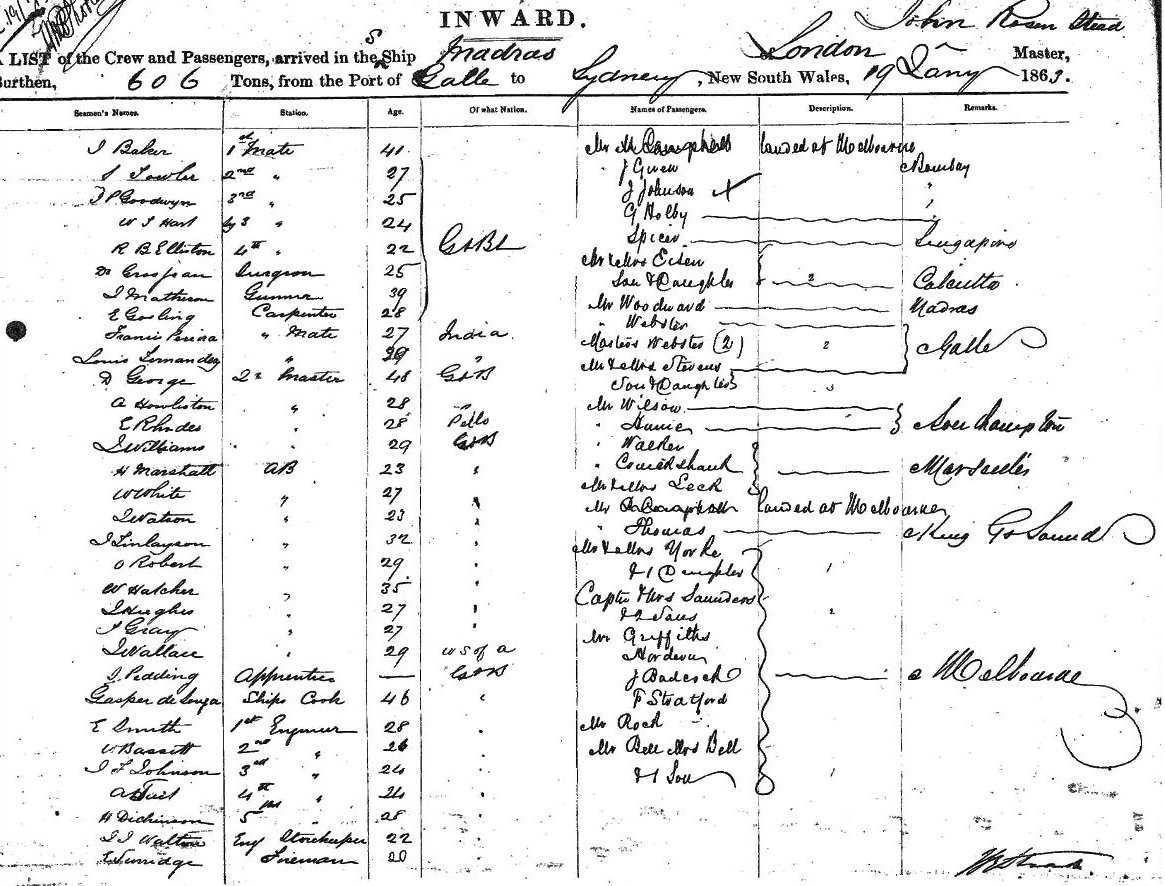 INWARD.
John Rosen Stead
A LIST of the Crew and Passengers, arrived in the SS Ship Madras of London Master,
Burthen, 606 Tons, from the Port of Galle to Sydney, New South Wales, 19 Jany 1863.
Seamen's Names. Station. Age. Of what Nation. Names of Passengers. Description. Remarks.
J Baker 1st Mate 41 Mr landed at Melbourne
27 2nd " J Green Bombay
25 3rd " J Johnson X "
W J Hart " 24 G Holby
R B Elliston 4th " 22 G & B Spicer Singapore
Surgeon 25 Mr & Mrs
J Matheson Gunner 39 Son & Daughter 2 Calcutta
E Gosling Carpenter 28 Mr Woodward Madras
Francis Pereira " Mate 27 India " Webster
Louis Fernandez " " Masters Webster (2) 2 Galle
D George 2n Master 48 G & B Mr & Mrs Stevens
A Howliston " 28 " Son & Daughter
E Rhodes " 28 Mr Wilson
J Williams " 29 G & B " Southampton
H Marshall AB 23 " " Walker
W White " 27 " " Cruickshank Marseilles
J Watson " 23 " Mr & Mrs Leck
J Finlayson " 32 " Mr landed at Melbourne
O Robert " 29 " " Thomas King Gs Sound
W Hatcher " 35 " Mr & Mrs Yorke
J Hughes " 27 " & 1 Daughter 1
J Gray " 27 " Captn & Mrs Saunders
J Wallace " 29 U S of A & 2 Sons 2
J Pedding Apprentice — G & B Mr Griffiths
Gasper de Souza Ships Cook 46 " Hordern
E Smith 1st Engineer 28 " J Badcock Melbourne
W Bassett 2nd " 26 " F Stratford
J F Johnson 3rd " 24 " Mr Rock
A Tait 4th " 24 " Mr Bell Mrs Bell
H Dickinson 5th " 28 " & 1 Son 1
J J Walton Eng Storekeeper 22 "
Fireman 20 "